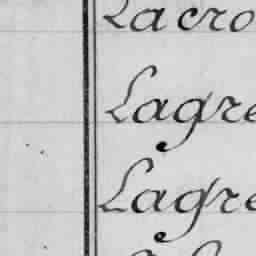 Lacro
Lagre
Lagre